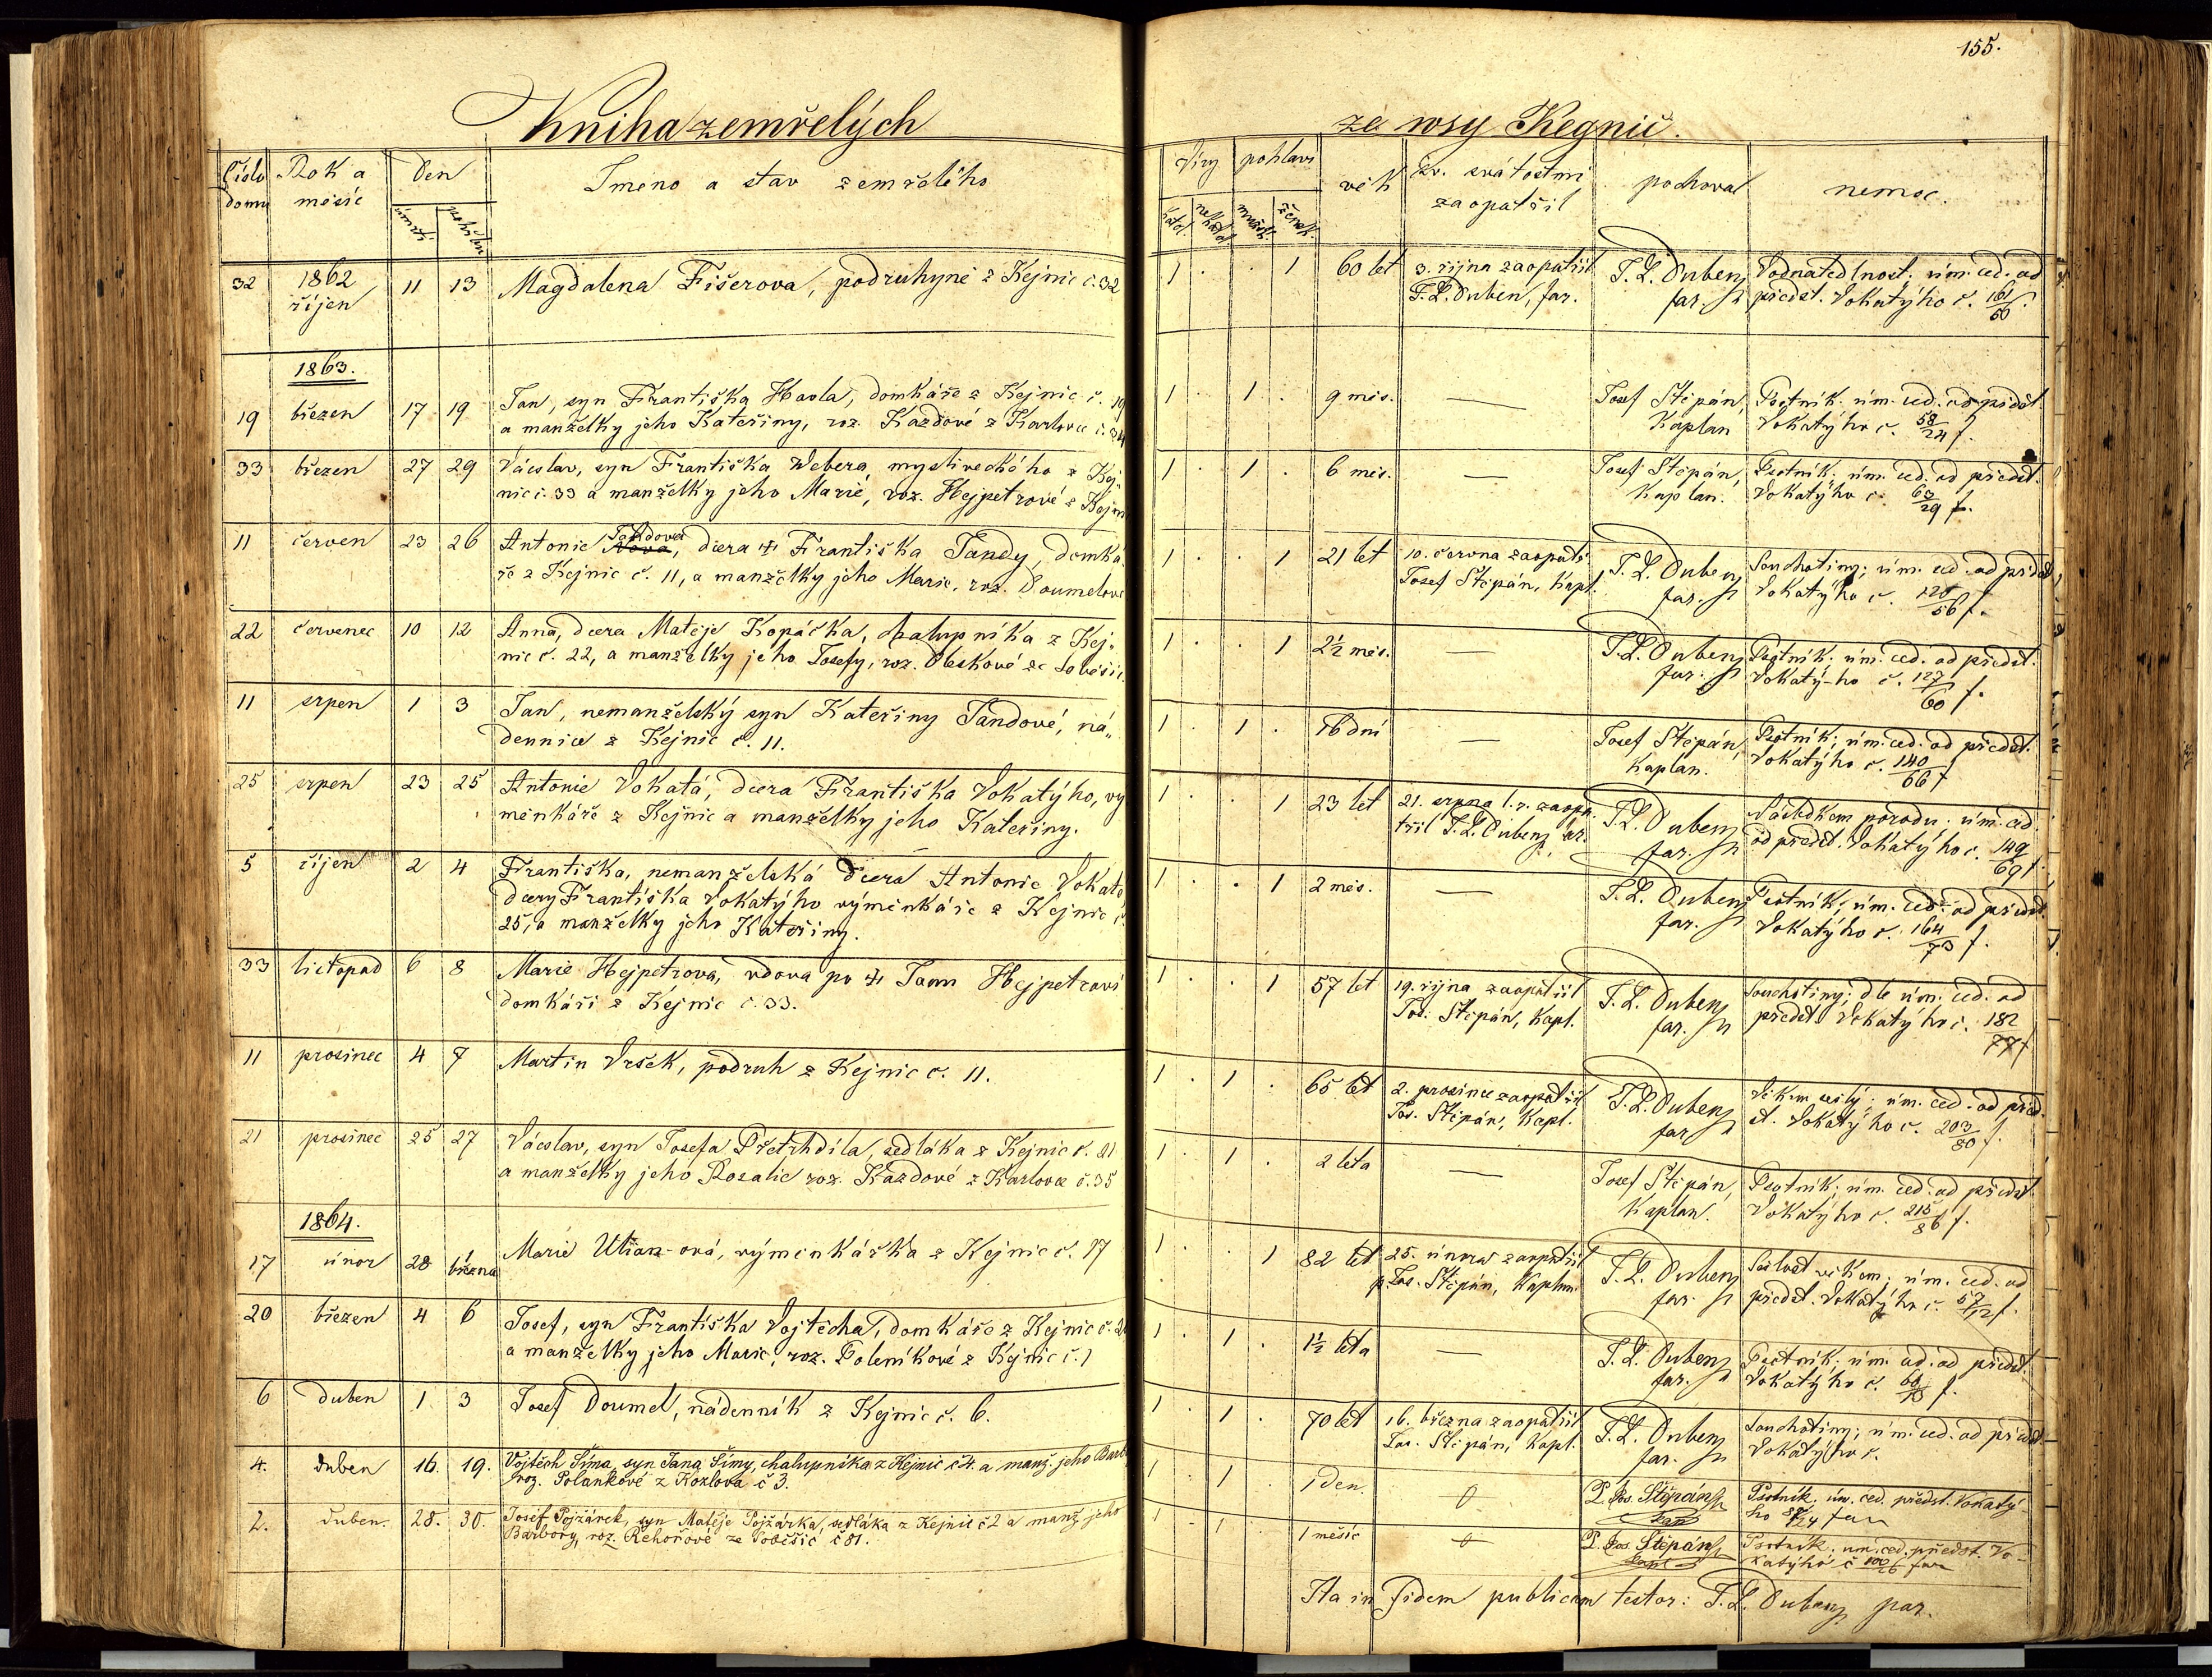 155.
Kniha zemřelých
ze wsy Kegnic.
Číslo domu
Rok a měsíc
Den
úmrtí
pohřbu
Jméno a stav zemřelého
Víry
pohlaví
katol.
nekatol.
mužsk.
žensk.
věk
Sv. svátostmi zaopatřil
pochoval
nemoc.
32 1862 říjen 11 13 Magdalena Fišerova, podruhyně z Kejnic č. 32
1 . . 1 60 let 3. října zaopatřil
F. L. Duben, far.
F. L. Duben far.
Vodnatedlnost; úm. ced. od
předst. Vokatýho č. 161/56 f.
1863.
19 březen 17 19 Jan, syn Františka Havla, domkáře z Kejnic č. 19
a manželky jeho Kateřiny, roz. Kazdové z Karlovce č. 34
1 . 1 . 9 měs. —
Josef Štěpán, Kaplan
Psotník. úm. ced. od předst.
Vokatýho č. 58/24 f.
33 březen 27 29 Vácslav, syn Františka Webera mysliveckého z Kej-
nic č. 33 a manželky jeho Marie, roz. Hejpetrové z Kejni
1 . 1 . 6 měs. —
Josef Štěpán, Kaplan.
Psotník; úm. ced. od předst.
Vokatýho č. 63/29 f.
11 červen 23 26 Antonie Tandova, dcera † Františka Tandy, domká-
ře z Kejnic č. 11, a manželky jeho Marie, roz. Doumelové
1 . . 1 21 let 10. června zaopatř.
Josef Štěpán, Kapl.
F. L. Duben far.
Souchotiny; úm. ced. od předst.
Vokatýho č. 120/56 f.
22 červenec 10 12 Anna, dcera Matěje Kopáčka, chalupníka z Kej-
nic č. 22, a manželky jeho Josefy, roz. Bleskové ze Soběšic
1 . . 1 2½ měs. —
F. L. Duben far.
Psotník; úm. ced. od předst.
Vokatý-ho č. 127/60 f.
11 srpen 1 3 Jan, nemanželský syn Kateřiny Tandové, ná-
dennice z Kejnic č. 11.
1 . 1 . 16 dní —
Josef Štěpán, Kaplan.
Psotník; úm. ced. od předst.
Vokatýho č. 140/66 f
25 srpen 23 25 Antonie Vokatá, dcera Františka Vokatýho, vý
měnkáře z Kejnic a manželky jeho Kateřiny.
1 . . 1 23 let 21. srpna t.r. zaopa-
třil F. L. Duben, far.
F. L. Duben far.
Následkem porodu; úm. ced.
od předst. Vokatýho č. 149/69 f.
5 říjen 2 4 Františka, nemanželská dcera Antonie Vokaté,
dcery Františka Vokatýho výměnkáře z Kejnic č.
25, a manželky jeho Kateřiny.
1 . . 1 2 měs. —
F. L. Duben far.
Psotník; úm. ced. od předst.
Vokatýho č. 164/73 f.
33 listopad 6 8 Marie Hejpetrova, vdova po † Janu Hejpetrovi
domkáři z Kejnic č. 33.
1 . . 1 57 let 19. října zaopatřil
Jos. Štěpán, Kapl.
F. L. Duben far.
Souchotiny; dle úm. ced. od
předst. Vokatýho č. 182/77 f
11 prosinec 4 7 Martin Vršek, podruh z Kejnic č. 11.
1 . 1 . 65 let 2. prosince zaopatřil
Jos. Štěpán, Kapl.
F. L. Duben far
Věkem sešlý; úm. ced. od před-
st. Vokatýho č. 203/80 f.
21 prosinec 25 27 Vácslav, syn Josefa Přetrhdíla, sedláka z Kejnic č. 21
a manželky jeho Rosalie roz. Kazdové z Karlovce č. 35
1 . 1 . 2 léta —
Josef Štěpán, Kaplan.
Psotník; úm. ced. od předst.
Vokatýho č. 215/86 f.
1864.
17 únor 28 1 března Marie Uhan-ová, výměnkářka z Kejnic č. 17
1 . . 1 82 let 25. února zaopatřil
p. Jos. Štěpán, Kaplan
F. L. Duben far.
Sešlost věkem; úm. ced. od
předst. Vokatýho č. 57/12 f.
20 březen 4 6 Josef, syn Františka Vojtěcha, domkáře z Kejnic č. 20
a manželky jeho Marie, roz. Poleníkové z Kejnic č. 1
1 . 1 . 1½ léta —
F. L. Duben far.
Psotník; úm. ced. od předst.
Vokatýho č. f.
6 duben 1 3 Josef Doumel, nádenník z Kejnic č. 6.
1 . 1 . 70 let 16. března zaopatřil
Jos. Štěpán, Kapl.
F. L. Duben far.
Souchotiny; úm. ced. od předst.
Vokatýho č.
4. duben 16. 19. Vojtěch Šíma, syn Jana Šímy, chalupníka z Kejnic č 4. a manž. jeho Barb
roz. Polankové z Kozlova č 3.
1 1 1 den 0
P. Jos. Štěpán
Kapl
Psotník. úm. ced. předst. Vokatý-
ho
2. duben. 28. 30. Josef Pojžárek, syn Matěje Pojžárka, sedláka z Kejnic č 2 a manž. jeho
Barbory, roz. Řehořové ze Soběšic č 81.
1 . 1 . 1 měsíc 0
P. Jos. Štěpán
Kapl
Psotník. úm. ced. předst. Vo-
katýho č 100/26 far
Ita in fidem publicam testor: F. L. Duben par.